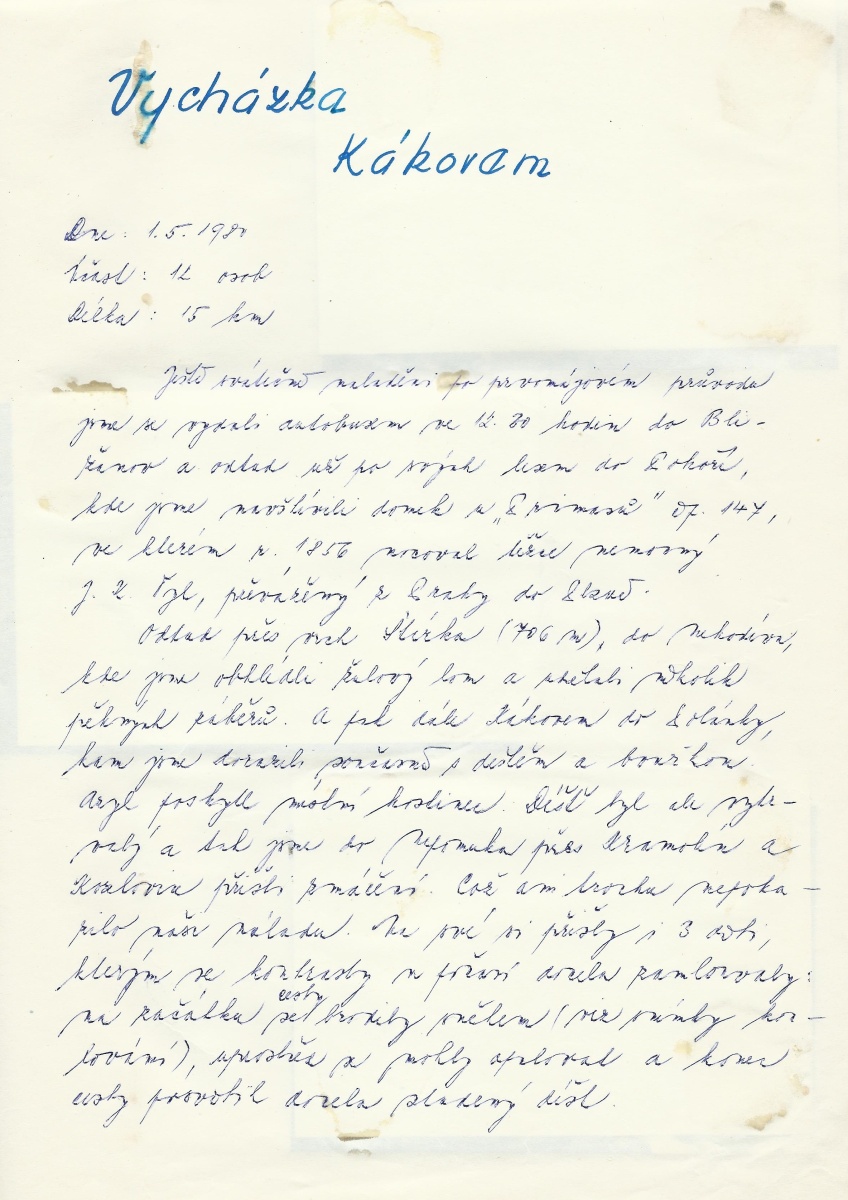 Vycházka
Kákovem
Dne: 1.5.1980
Účast: 12 osob
Délka: 15 km
Ještě svátečně naladěni po prvomájovém průvodu
jsme se vydali autobusem ve 12.30 hodin do Bli-
žanov a odtud už po svých lesem do Pohoří,
kde jsme navštívili domek u „Primasů" čp. 147,
ve kterém r. 1856 nocoval těžce nemocný
J. K. Tyl, převážený z Prahy do Plzně.
Odtud přes vrch Štírka (706 m), do Nehodíva,
kde jsme obhlédli žulový lom a udělali několik
pěkných záběrů. A pak dále Kákovem do Polánky,
kam jsme dorazili současně s deštěm a bouřkou.
Azyl poskytl místní hostinec. Déšť byl ale vytr-
valý a tak jsme do Nepomuka přes Kramolín a
Kozlovice přišli zmáčení. Což ani trochu nepoka-
zilo naši náladu. Na své si přišly i 3 děti,
kterým se kontrasty v počasí docela zamlouvaly:
na začátku cesty se brodily sněhem (viz snímky
tování), uprostřed se mohly opalovat a konec
cesty prosvětlil docela studený déšť.